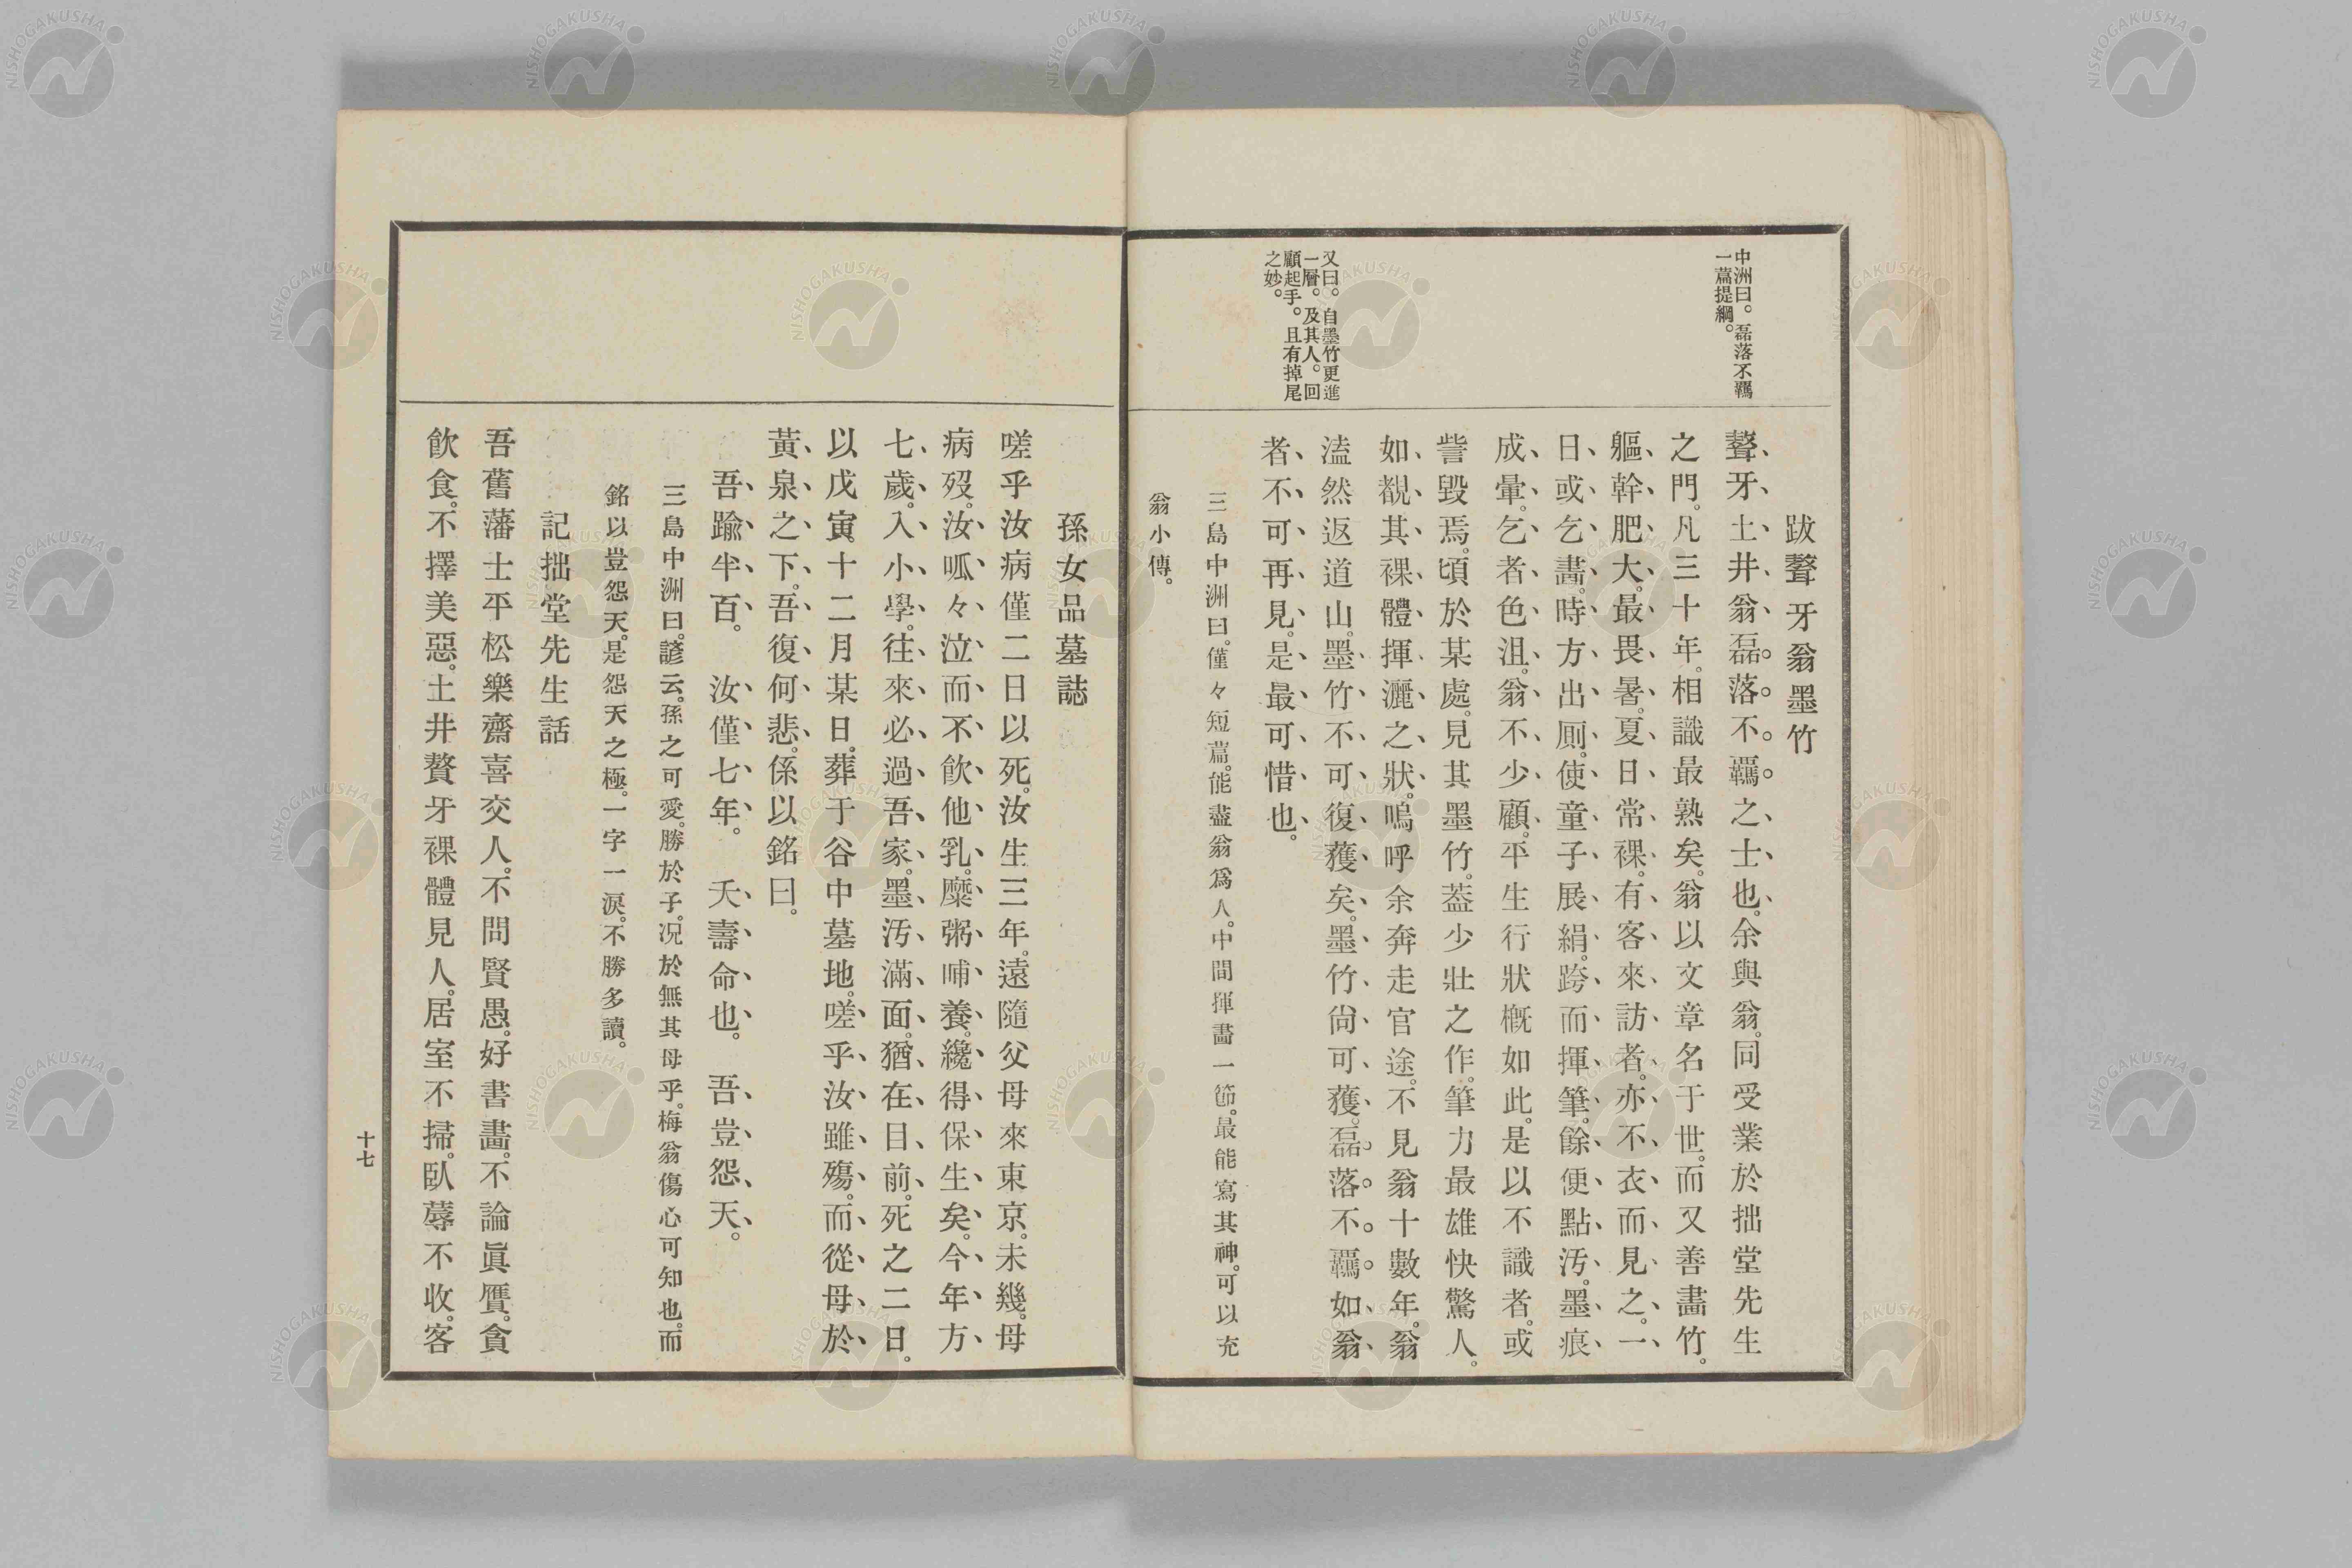 中洲曰。磊落不羈
一篇提綱。
又曰。自墨竹更進
一層。及其人。回
顧起手。且有掉尾
之妙。
跋聱牙翁墨竹
聱牙土井翁磊落不羈之士也。余與翁。同受業於拙堂先生
之門。凡三十年。相識最熟矣。翁以文章名于世。而又善畵竹。
軀幹肥大。最畏暑。夏日常裸。有客來訪者。亦不衣而見之。一
日或乞畵。時方出厠。使童子展絹。跨而揮筆。餘便點汚。墨痕
成暈。乞者色沮。翁不少顧。平生行狀槪如此。是以不識者。或
訾毀焉。頃於某處。見其墨竹。葢少壯之作。筆力最雄快驚人。
如覩其裸體揮灑之狀。嗚呼余奔走官途。不見翁十數年。翁
溘然返道山。墨竹不可復獲矣。墨竹尙可獲。磊落不羈如翁
者不可再見。是最可惜也。
三島中洲曰。僅々短篇。能盡翁爲人。中間揮畵一節。最能寫其神。可以充
翁小傳。
孫女品墓誌
嗟乎汝病僅二日以死。汝生三年。遠隨父母來東京。未幾。母
病歿。汝呱々泣而不飮他乳。糜粥哺養。纔得保生矣。今年方
七歲。入小學。往來必過吾家。墨汚滿面。猶在目前。死之二日。
以戊寅十二月某日。葬于谷中墓地。嗟乎汝雖殤。而從母於
黃泉之下。吾復何悲。係以銘曰。
吾踰半百。　汝僅七年。　夭壽命也。　吾豈怨天。
三島中洲曰。諺云。孫之可愛。勝於子。况於無其母乎。梅翁傷心可知也。而
銘以豈怨天。是怨天之極。一字一淚。不勝多讀。
記拙堂先生話
吾舊藩士平松樂齋喜交人。不問賢愚。好書畵。不論眞贋。貪
飮食。不擇美惡。土井贅牙裸體見人。居室不掃。臥蓐不收。客
十七
NISHOGAKUSHA